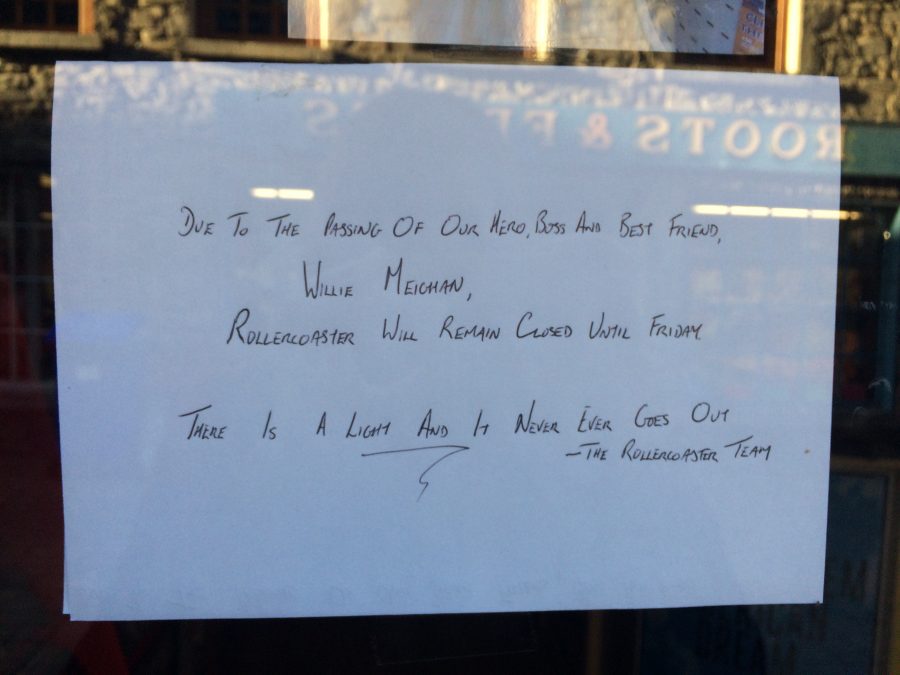 Due To The Passing Of Our Hero, Boss And Best Friend,
Willie Meighan,
Rollercoaster Will Remain Closed Until Friday
There Is A Light And It Never Ever Goes Out
- The Rollercoaster Team
ROOTS &